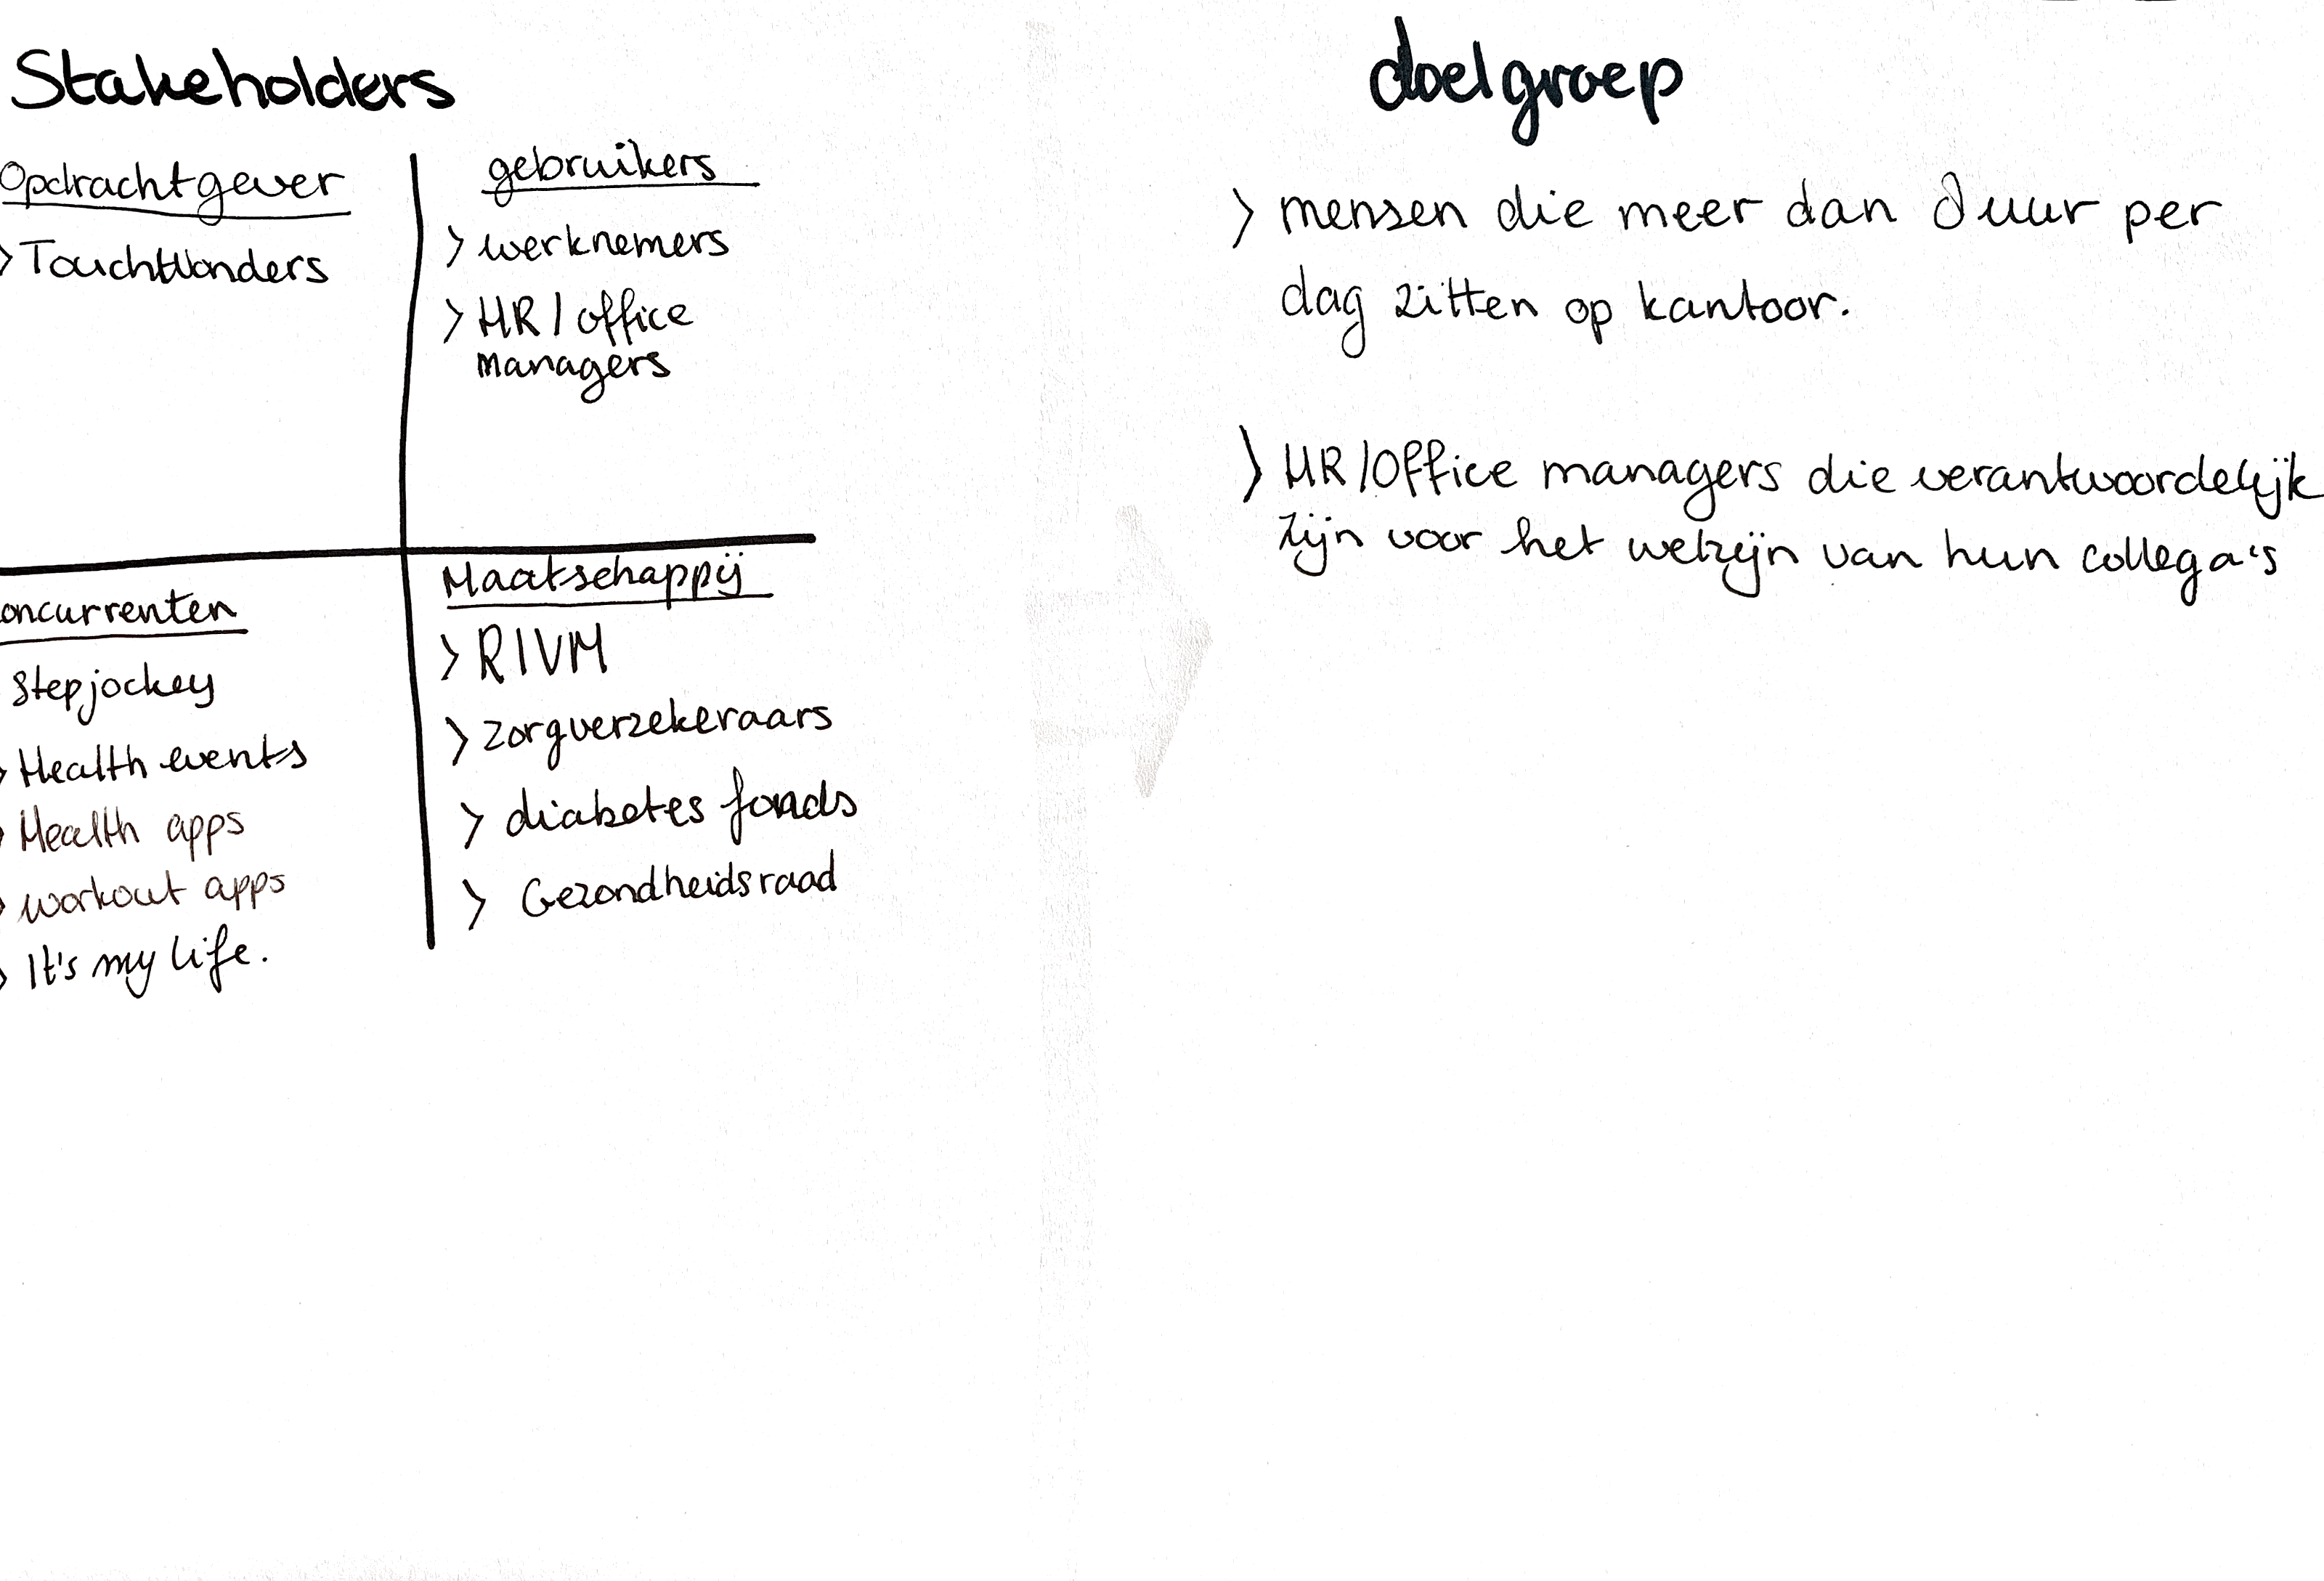 Stakeholders
Opdrachtgever
> TouchWonders
gebruikers
> werknemers
> HR / office
managers
oncurrenten
Stepjockey
> Health events
> Health apps
> workout apps
> It's my life.
Maatschappij
> RIVM
> zorgverzekeraars
> diabetes fonds
> Gezondheidsraad
doelgroep
> mensen die meer dan 8 uur per
dag zitten op kantoor.
> HR/Office managers die verantwoordelijk
zijn voor het welzijn van hun collega's